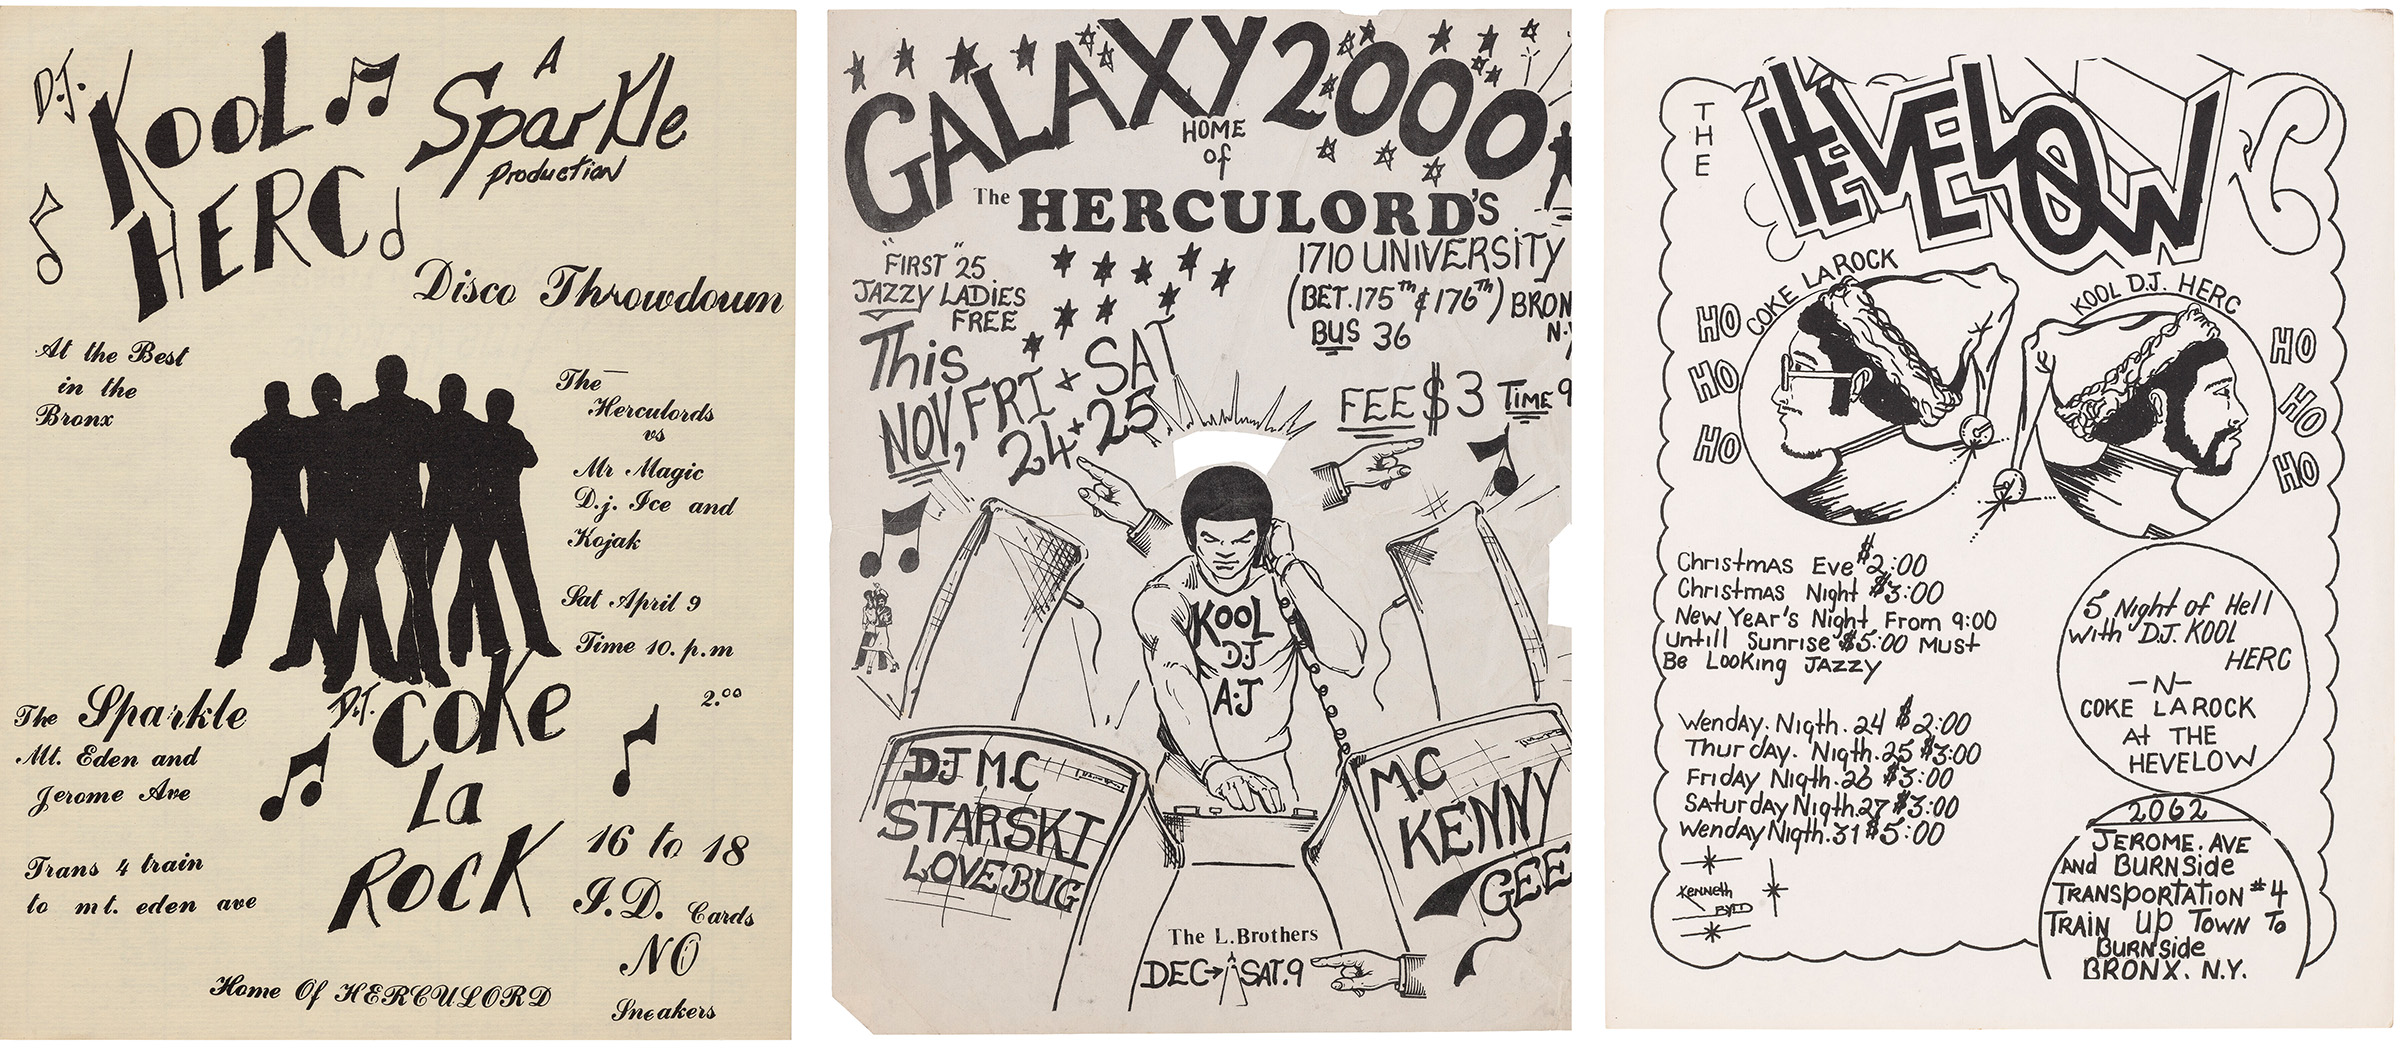 D.J.
KOOL
HERC
A
Sparkle
Production
Disco Throwdown
At the Best
in the
Bronx
The
Herculords
vs
Mr Magic
D.j. Ice and
Kojak
Sat April 9
Time 10. p.m
2.00
The Sparkle
Mt. Eden and
Jerome Ave
D.J. COKE
La
ROCK
Trans 4 train
to mt. eden ave
16 to 18
I.D. Cards
NO
Sneakers
Home Of HERCULORD
GALAXY 2000
HOME
of
The HERCULORD'S
"FIRST" 25
JAZZY LADIES
FREE
1710 UNIVERSITY
(BET. 175th & 176th) BRON
BUS 36 N.Y
This
NOV, FRI & SAT
24 + 25
FEE $3 TIME 9
KOOL
DJ
A.J
DJ M.C
STARSKI
LOVEBUG
M.C
KENNY
GEE
The L. Brothers
DEC→SAT.9
THE
HEVELOW
COKE LAROCK
KOOL D.J. HERC
HO
HO
HO
HO
HO
HO
Christmas Eve $2:00
Christmas Night $3:00
New Year's Night From 9:00
Untill Sunrise $5:00 Must
Be Looking JAZZY
Wenday. Nigth. 24 $2:00
Thurday. Nigth. 25 $3:00
Friday Nigth. 26 $3:00
Saturday Nigth. 27 $3:00
Wenday Nigth. 31 $5:00
Kenneth
BYRD
5 Night of Hell
with D.J. KOOL
HERC
-N-
COKE LAROCK
At THE
HEVELOW
2062
JEROME. AVE
AND BURNSide
TRANSportation #4
TRAIN UP TOWN To
BURNSide
BRONX. N.Y.